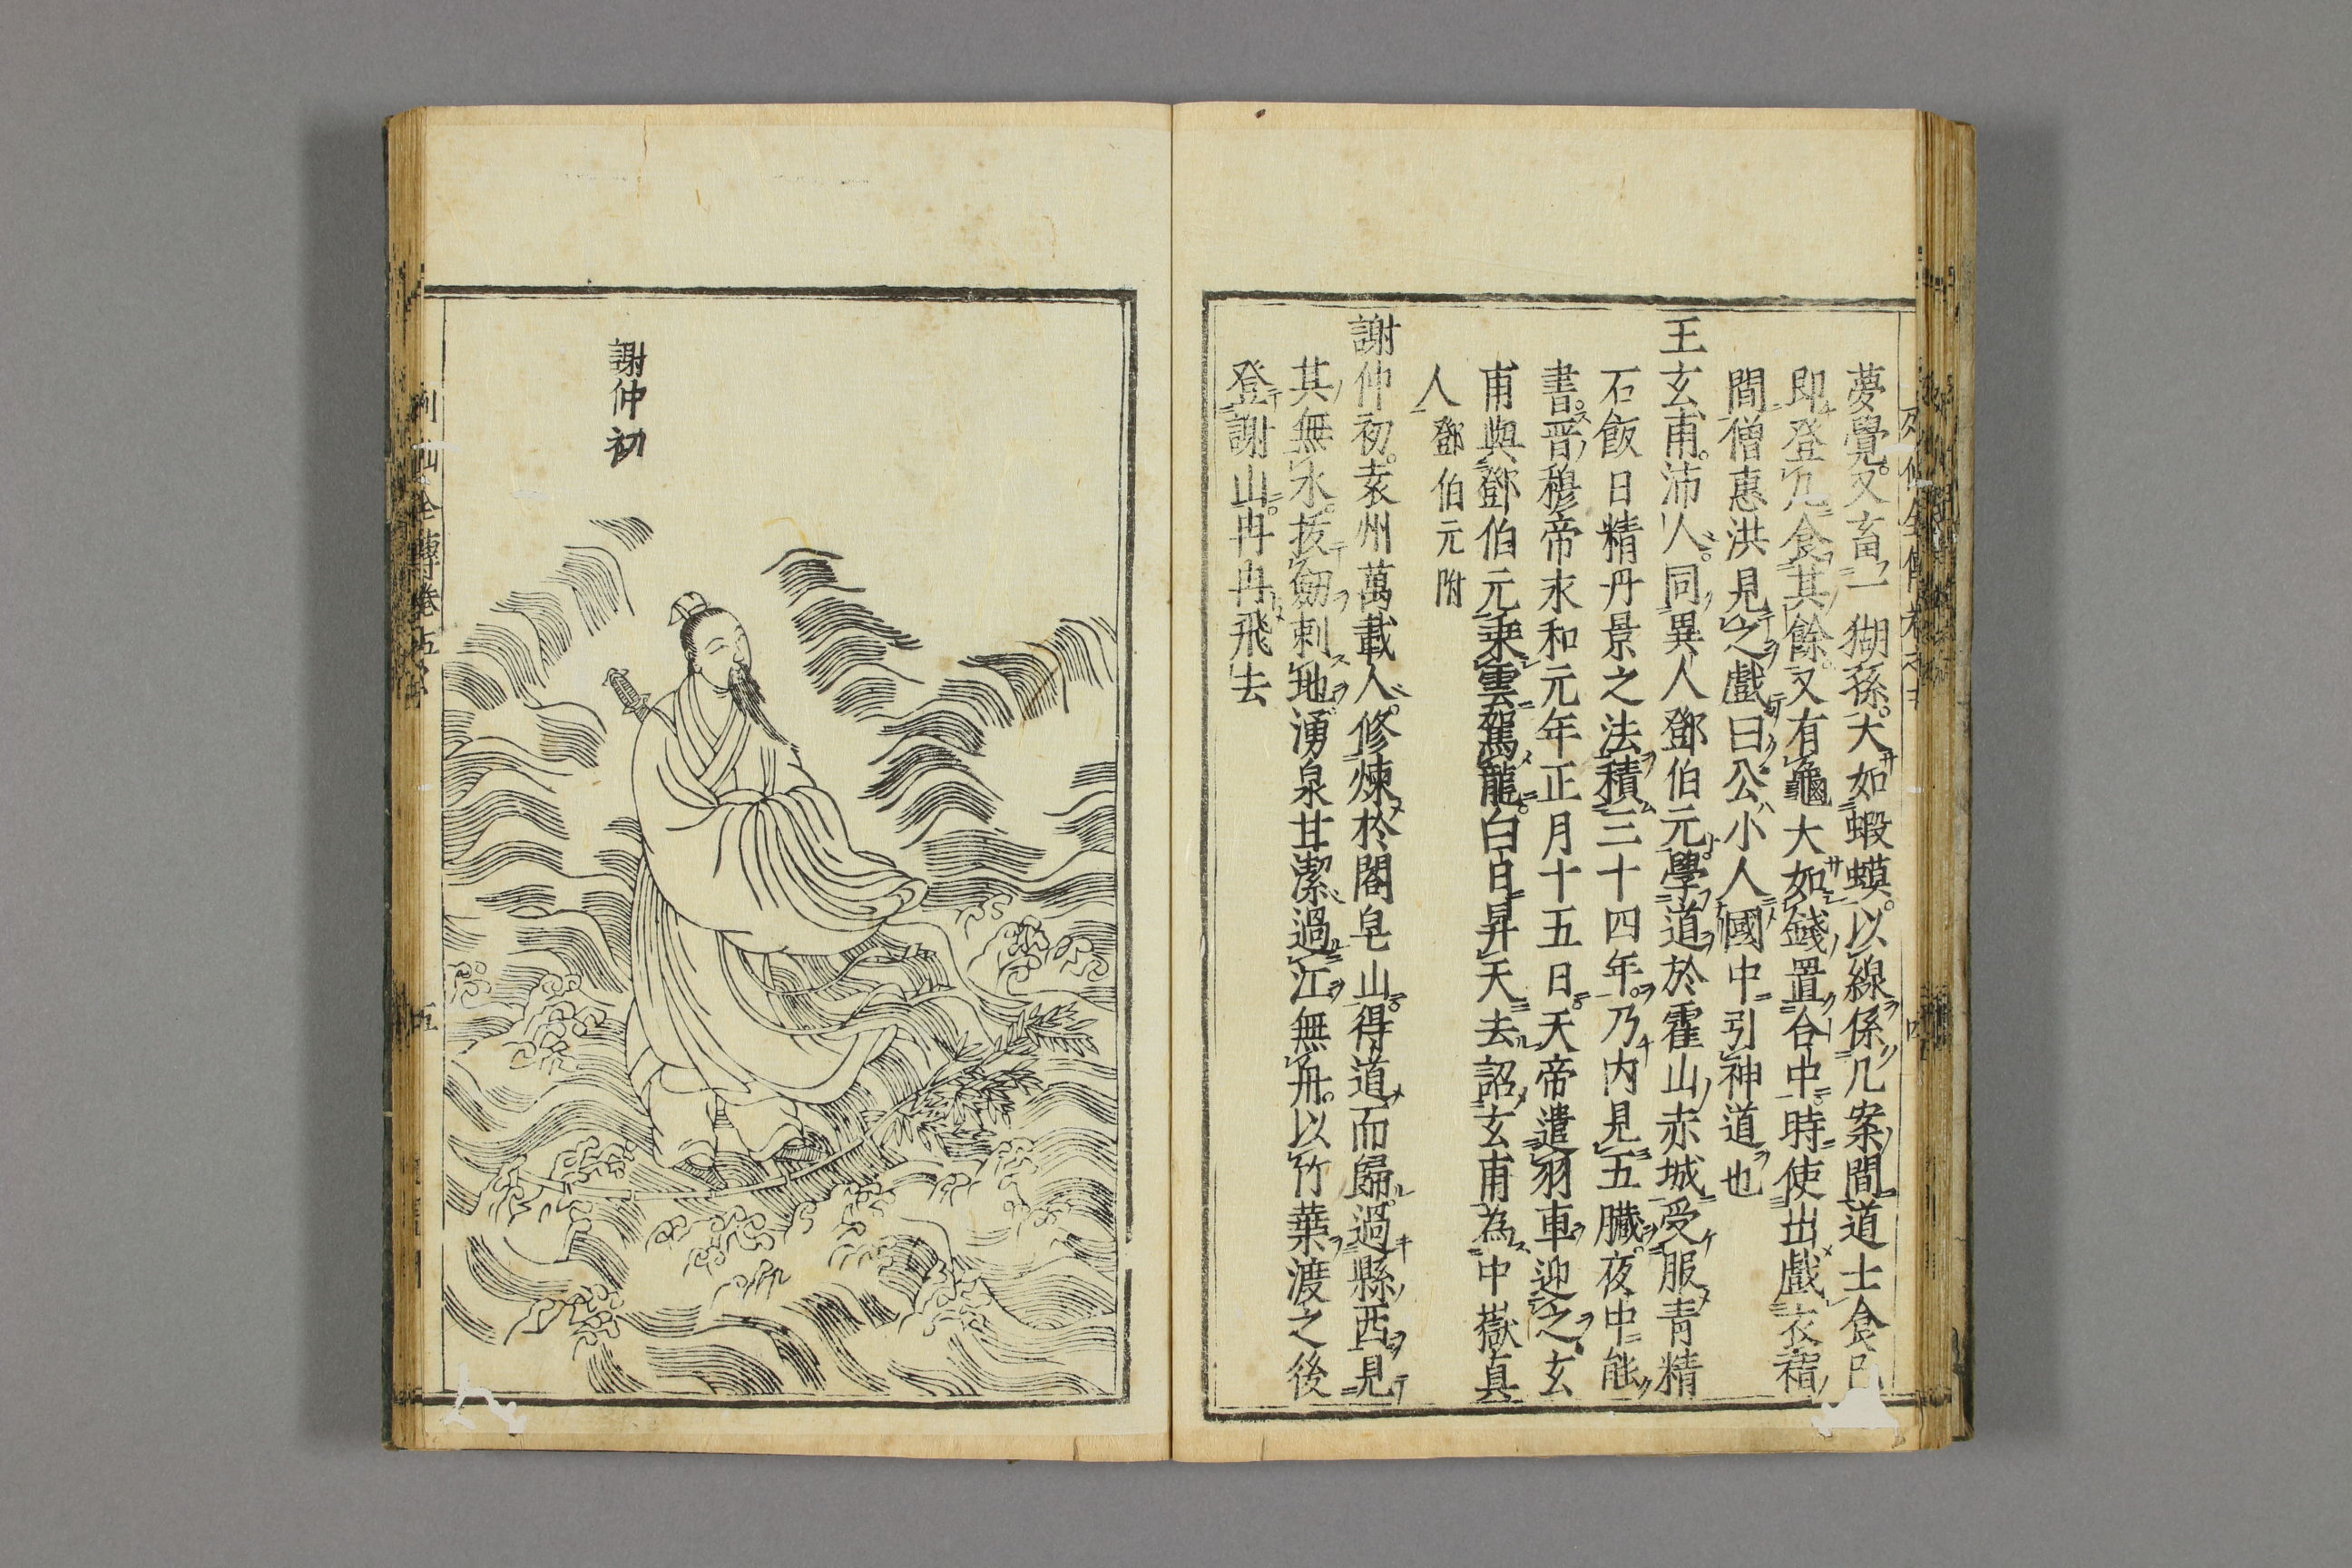 夢覺。又畜一猢猻。大如蝦蟆。以線係几案間。道士食已
即登几食其餘。又有龜大如錢置合中。時使出戲衣褶
間僧惠洪見之戲曰公小人國中引神道也
王玄甫。沛人。同異人鄧伯元學道於霍山赤城受服青精
石飯日精丹景之法積三十四年。乃內見五臟。夜中能
書。晉穆帝永和元年正月十五日。天帝遣羽車迎之玄
甫與鄧伯元乘雲駕龍。白日昇天去詔玄甫為中嶽真
人 鄧伯元附
謝仲初。袁州萬載人。修煉於閣皂山。得道而歸。過縣西見
其無水。拔劒刺地湧泉甘潔過江無舟。以竹葉渡之後
登謝山。冉冉飛去
謝仲初
列仙全傳卷五
五